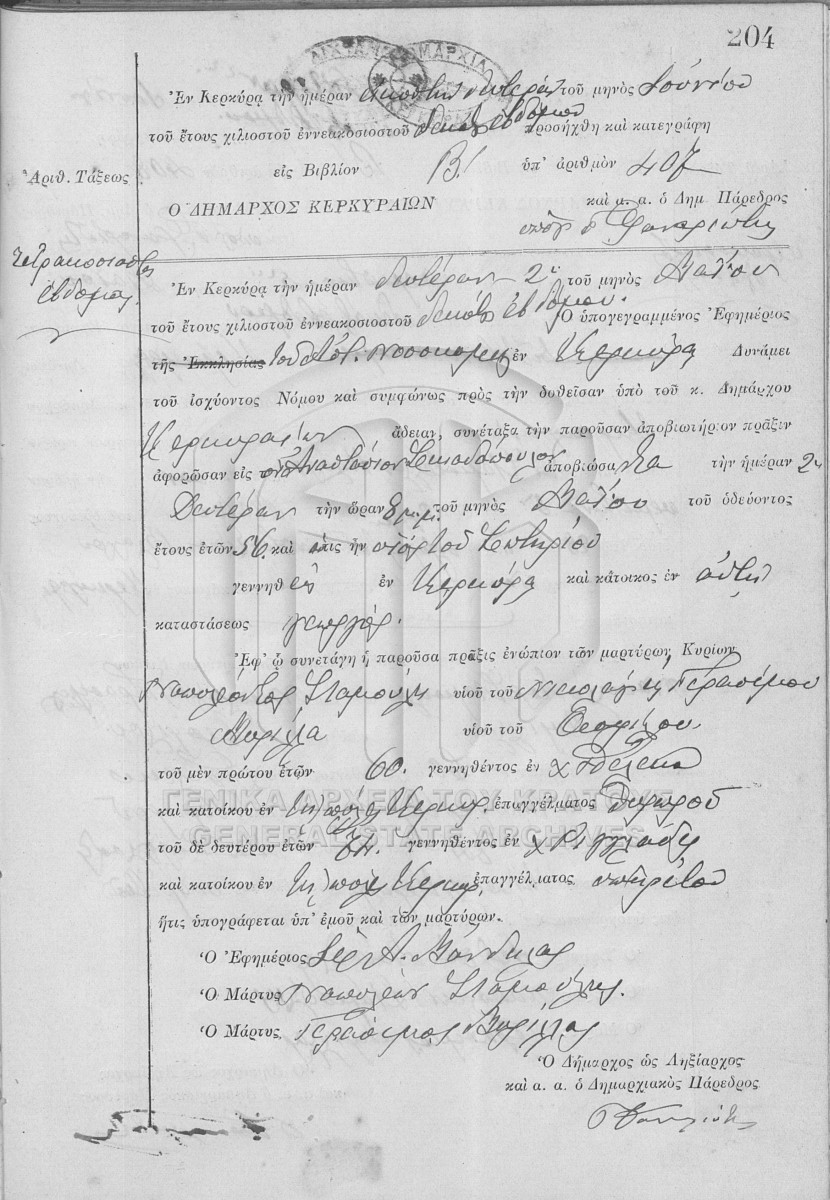 204
Ἐν Κερκύρᾳ τὴν ἡμέραν εἰκοστὴν δευτέραν τοῦ μηνὸς Ἰουνίου
τοῦ ἔτους χιλιοστοῦ ἐννεακοσιοστοῦ δεκάτου ἑβδόμου προσήχθη καὶ κατεγράφη
Ἀριθ. Τάξεως
εἰς Βιβλίον Β! ὑπ' ἀριθμὸν 407
Ὁ ΔΗΜΑΡΧΟΣ ΚΕΡΚΥΡΑΙΩΝ
καὶ α. α. ὁ Δημ Πάρεδρος
Τετρακοσιοστὸς
ἕβδομος.
Ἐν Κερκύρᾳ τὴν ἡμέραν δευτέραν 2αν τοῦ μηνὸς Μαΐου
τοῦ ἔτους χιλιοστοῦ ἐννεακοσιοστοῦ δεκάτου ἑβδόμου. Ὁ ὑπογεγραμμένος Ἐφημέριος
τῆς Ἐκκλησίας τοῦ Νοσοκομείου ἐν Κερκύρᾳ Δυνάμει
τοῦ ἰσχύοντος Νόμου καὶ συμφώνως πρὸς τὴν δοθεῖσαν ὑπὸ τοῦ κ. Δημάρχου
Κερκυραίων ἄδειαν, συνέταξα τὴν παροῦσαν ἀποβιωτήριον πρᾶξιν
ἀφορῶσαν εἰς τὸν Ἀναστάσιον ἀποβιώσαντα τὴν ἡμέραν 2αν
Δευτέραν τὴν ὥραν 8 μ.μ. τοῦ μηνὸς Μαΐου τοῦ ὁδεύοντος
ἔτους ἐτῶν 56. καὶ ὅστις ἦν υἱὸς τοῦ Σωτηρίου
γεννηθεὶς ἐν Κερκύρᾳ καὶ κάτοικος ἐν αὐτῇ
καταστάσεως γεωργός.
Ἐφ' ᾧ συνετάγη ἡ παροῦσα πρᾶξις ἐνώπιον τῶν μαρτύρων Κυρίων
Ναπολέοντος Σταμούλη υἱοῦ τοῦ Νικολάου, Γερασίμου
υἱοῦ τοῦ
τοῦ μὲν πρώτου ἐτῶν 60. γεννηθέντος ἐν
καὶ κατοίκου ἐν τῇ πόλει Κερκύρ. ἐπαγγέλματος
τοῦ δὲ δευτέρου ἐτῶν γεννηθέντος ἐν
καὶ κατοίκου ἐν τῇ πόλει Κερκύρ. ἐπαγγέλματος ὑπηρέτου
ἥτις ὑπογράφεται ὑπ' ἐμοῦ καὶ τῶν μαρτύρων.
Ὁ Ἐφημέριος
Ὁ Μάρτυς Ναπολέων Σταμούλης.
Ὁ Μάρτυς Γεράσιμος
Ὁ Δήμαρχος ὡς Ληξίαρχος
καὶ α. α. ὁ Δημαρχιακὸς Πάρεδρος
ΓΕΝΙΚΑ ΑΡΧΕΙΑ ΤΟΥ ΚΡΑΤΟΥΣ
GENERAL STATE ARCHIVES